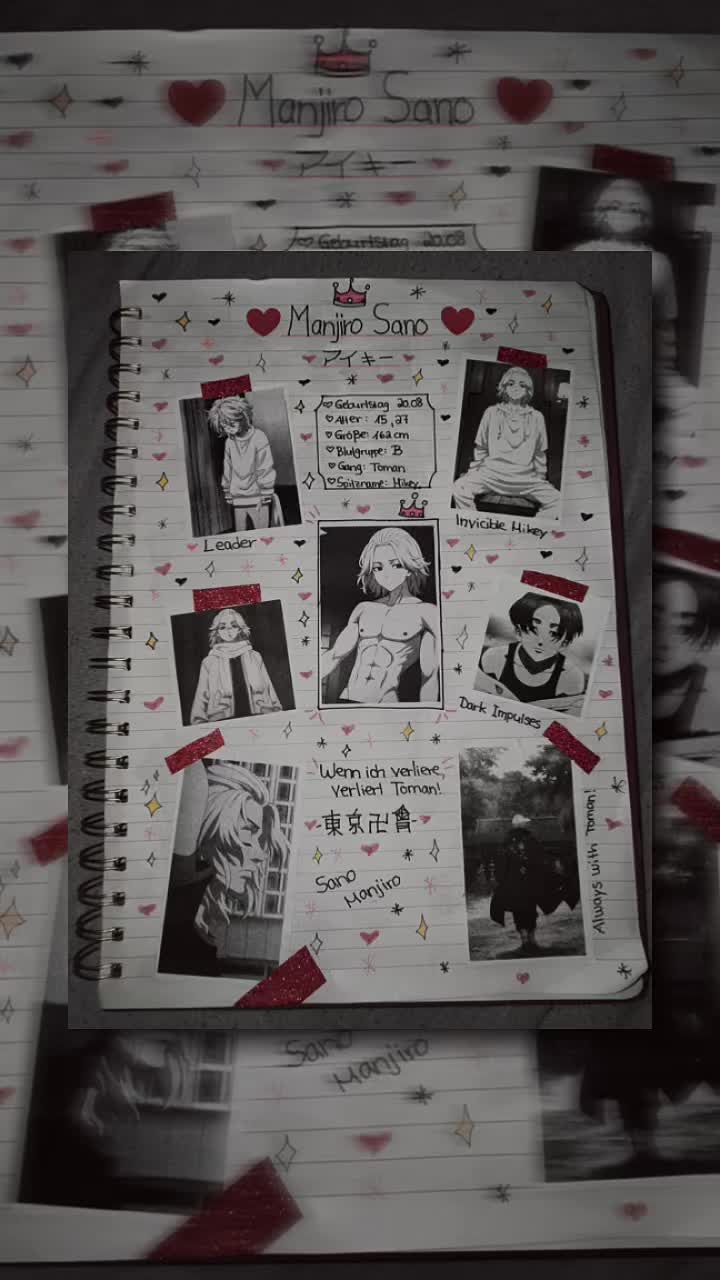 Manjiro Sano
アイキー
Geburtstag 20.08
Alter: 15, 27
Größe: 162 cm
Blutgruppe: B
Gang: Toman
Spitzname: Mikey
Leader
Invicible Mikey
Dark Impulses
Wenn ich verliere,
verliert Toman!
-東京卍會-
Sano
Manjiro
Always with Toman!